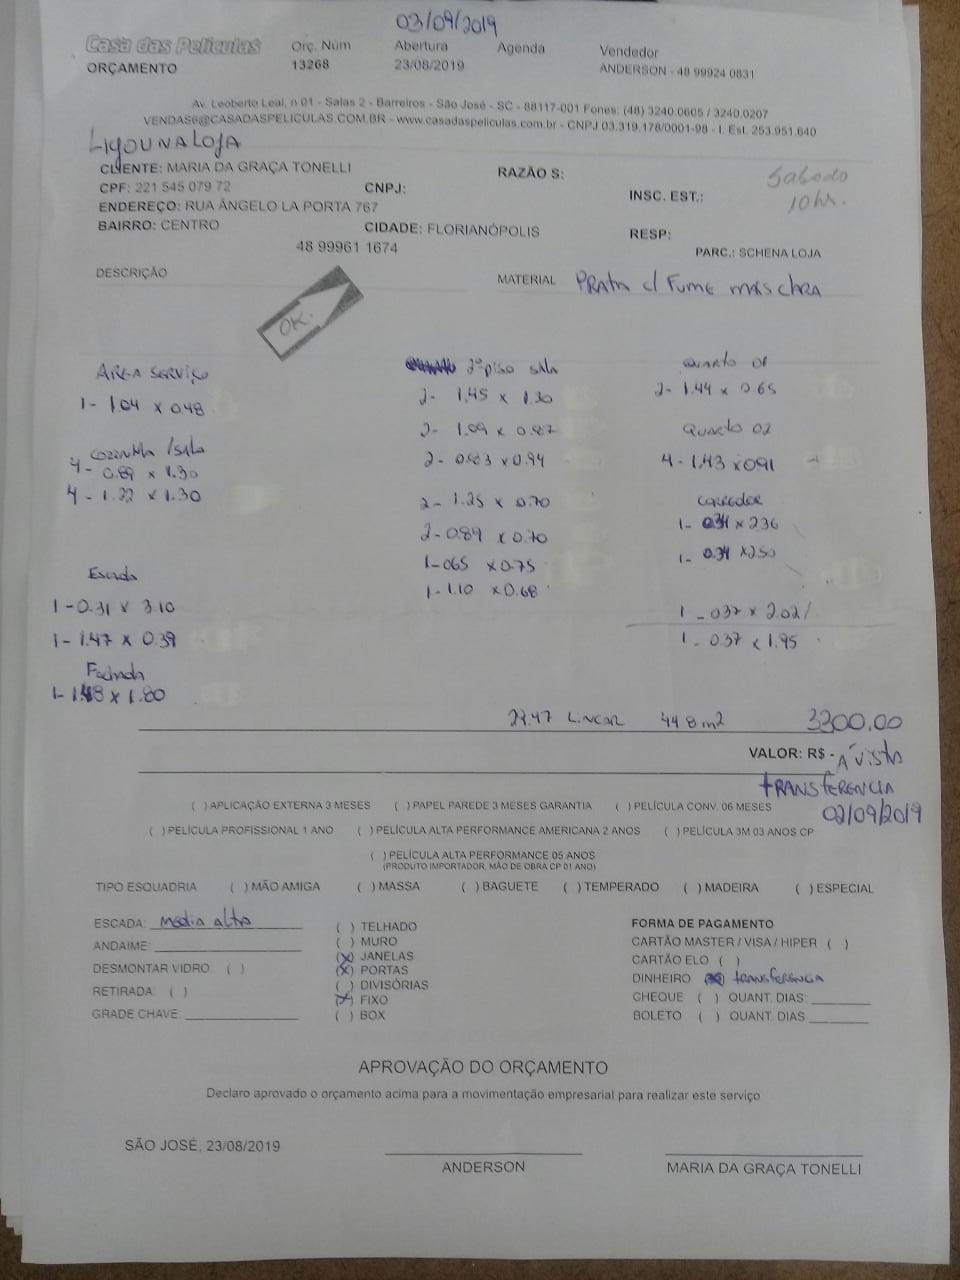 03/09/2019
Casa das Películas Orç. Núm Abertura Agenda Vendedor
ORÇAMENTO 13268 23/08/2019 ANDERSON - 48 99924 0831
Av. Leoberto Leal, n 01 - Salas 2 - Barreiros - São José - SC - 88117-001 Fones: (48) 3240.0605 / 3240.0207
VENDAS6@CASADASPELICULAS.COM.BR - www.casadaspeliculas.com.br - CNPJ 03.319.178/0001-98 - I. Est. 253.951.640
LIGOU NA LOJA
CLIENTE: MARIA DA GRAÇA TONELLI RAZÃO S:
CPF: 221 545 079 72 CNPJ: INSC. EST.:
Sabado
10 hr.
ENDEREÇO: RUA ÂNGELO LA PORTA 767
BAIRRO: CENTRO CIDADE: FLORIANÓPOLIS RESP:
48 99961 1674 PARC.: SCHENA LOJA
DESCRIÇÃO MATERIAL PRATA c/ FUME MAIS CLARA
OK.
AREA SERVIÇO
1- 1.04 x 0.48
COZINHA / SALA
4- 0.89 x 1.30
4- 1.22 x 1.30
Escada
1- 0.31 x 3.10
1- 1.47 x 0.39
Fachada
1- 1.48 x 1.80
2º piso SALA
2- 1.45 x 1.30
2- 1.09 x 0.87
2- 0.83 x 0.94
2- 1.25 x 0.70
2- 0.89 x 0.70
1- 065 x 0.75
1- 1.10 x 0.68
QUARTO 01
2- 1.44 x 0.65
QUARTO 02
4- 1.43 x 091
CORREDOR
1- 0.34 x 2.36
1- 0.34 x 2.50
1- 037 x 2.02
1- 0.37 x 1.95
29.47 LINEAR 44.8 m2 3300.00
VALOR: R$ - A VISTA
TRANSFERENCIA
02/09/2019
( ) APLICAÇÃO EXTERNA 3 MESES ( ) PAPEL PAREDE 3 MESES GARANTIA ( ) PELÍCULA CONV. 06 MESES
( ) PELÍCULA PROFISSIONAL 1 ANO ( ) PELÍCULA ALTA PERFORMANCE AMERICANA 2 ANOS ( ) PELÍCULA 3M 03 ANOS CP
( ) PELÍCULA ALTA PERFORMANCE 05 ANOS
(PRODUTO IMPORTADOR, MÃO DE OBRA CP 01 ANO)
TIPO ESQUADRIA ( ) MÃO AMIGA ( ) MASSA ( ) BAGUETE ( ) TEMPERADO ( ) MADEIRA ( ) ESPECIAL
ESCADA: Media alta
ANDAIME:
DESMONTAR VIDRO: ( )
RETIRADA: ( )
GRADE CHAVE:
( ) TELHADO
( ) MURO
(X) JANELAS
(X) PORTAS
( ) DIVISÓRIAS
(X) FIXO
( ) BOX
FORMA DE PAGAMENTO
CARTÃO MASTER / VISA / HIPER ( )
CARTÃO ELO ( )
DINHEIRO (X) TRANSFERENCIA
CHEQUE ( ) QUANT. DIAS:
BOLETO ( ) QUANT. DIAS
APROVAÇÃO DO ORÇAMENTO
Declaro aprovado o orçamento acima para a movimentação empresarial para realizar este serviço
SÃO JOSÉ, 23/08/2019
ANDERSON MARIA DA GRAÇA TONELLI